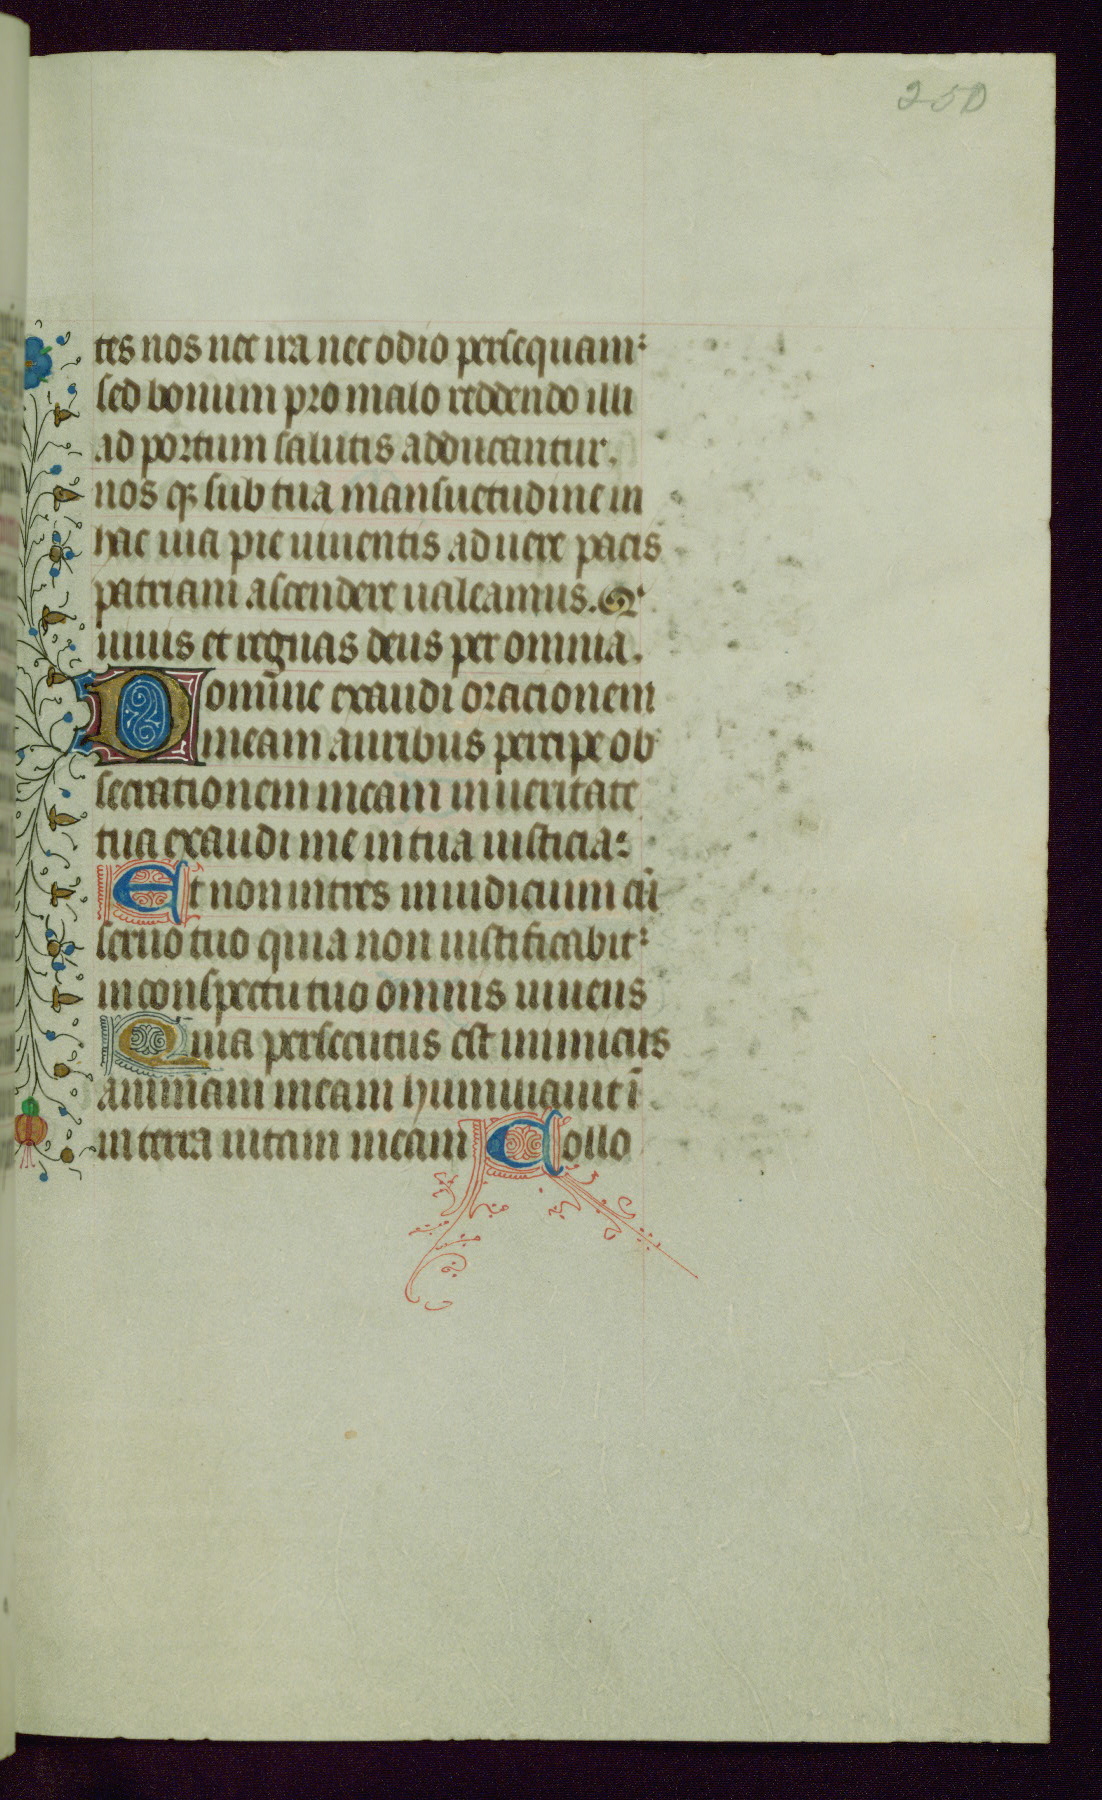 250
tes nos nec ira nec odio persequam᷑
sed bonum pro malo reddendo illi
ad portum salutis adducantur.
nos qꝫ sub tua mansuetudine in
hac uia pie uiuentis ad uere pacis
patriam ascendere ualeamus. Qͥ
uiuis et regnas deus per omnia.
Domine exaudi oracionem
meam auribus percipe ob
secrationem meam in ueritate
tua exaudi me in tua iusticia
Et non intres in iudicium cū
seruo tuo quia non iustificabit᷑
in conspectu tuo omnis uiuens
Quia persecutus est inimicus
animam meam humiliauit ī
in terra uitam meam Collo